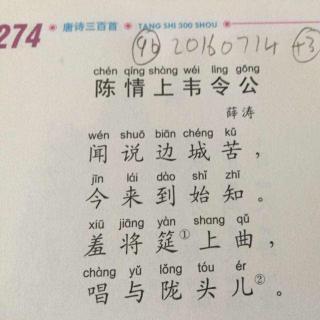 274 唐诗三百首 TANG SHI 300 SHOU
9b 20160714 +3
chén qíng shàng wéi lìng gōng
陈情上韦令公
薛涛
wén shuō biān chéng kǔ
闻说边城苦，
jīn lái dào shǐ zhī
今来到始知。
xiū jiāng yàn shang qǔ
羞将筵①上曲，
chàng yǔ lǒng tóu ér
唱与陇头儿②。